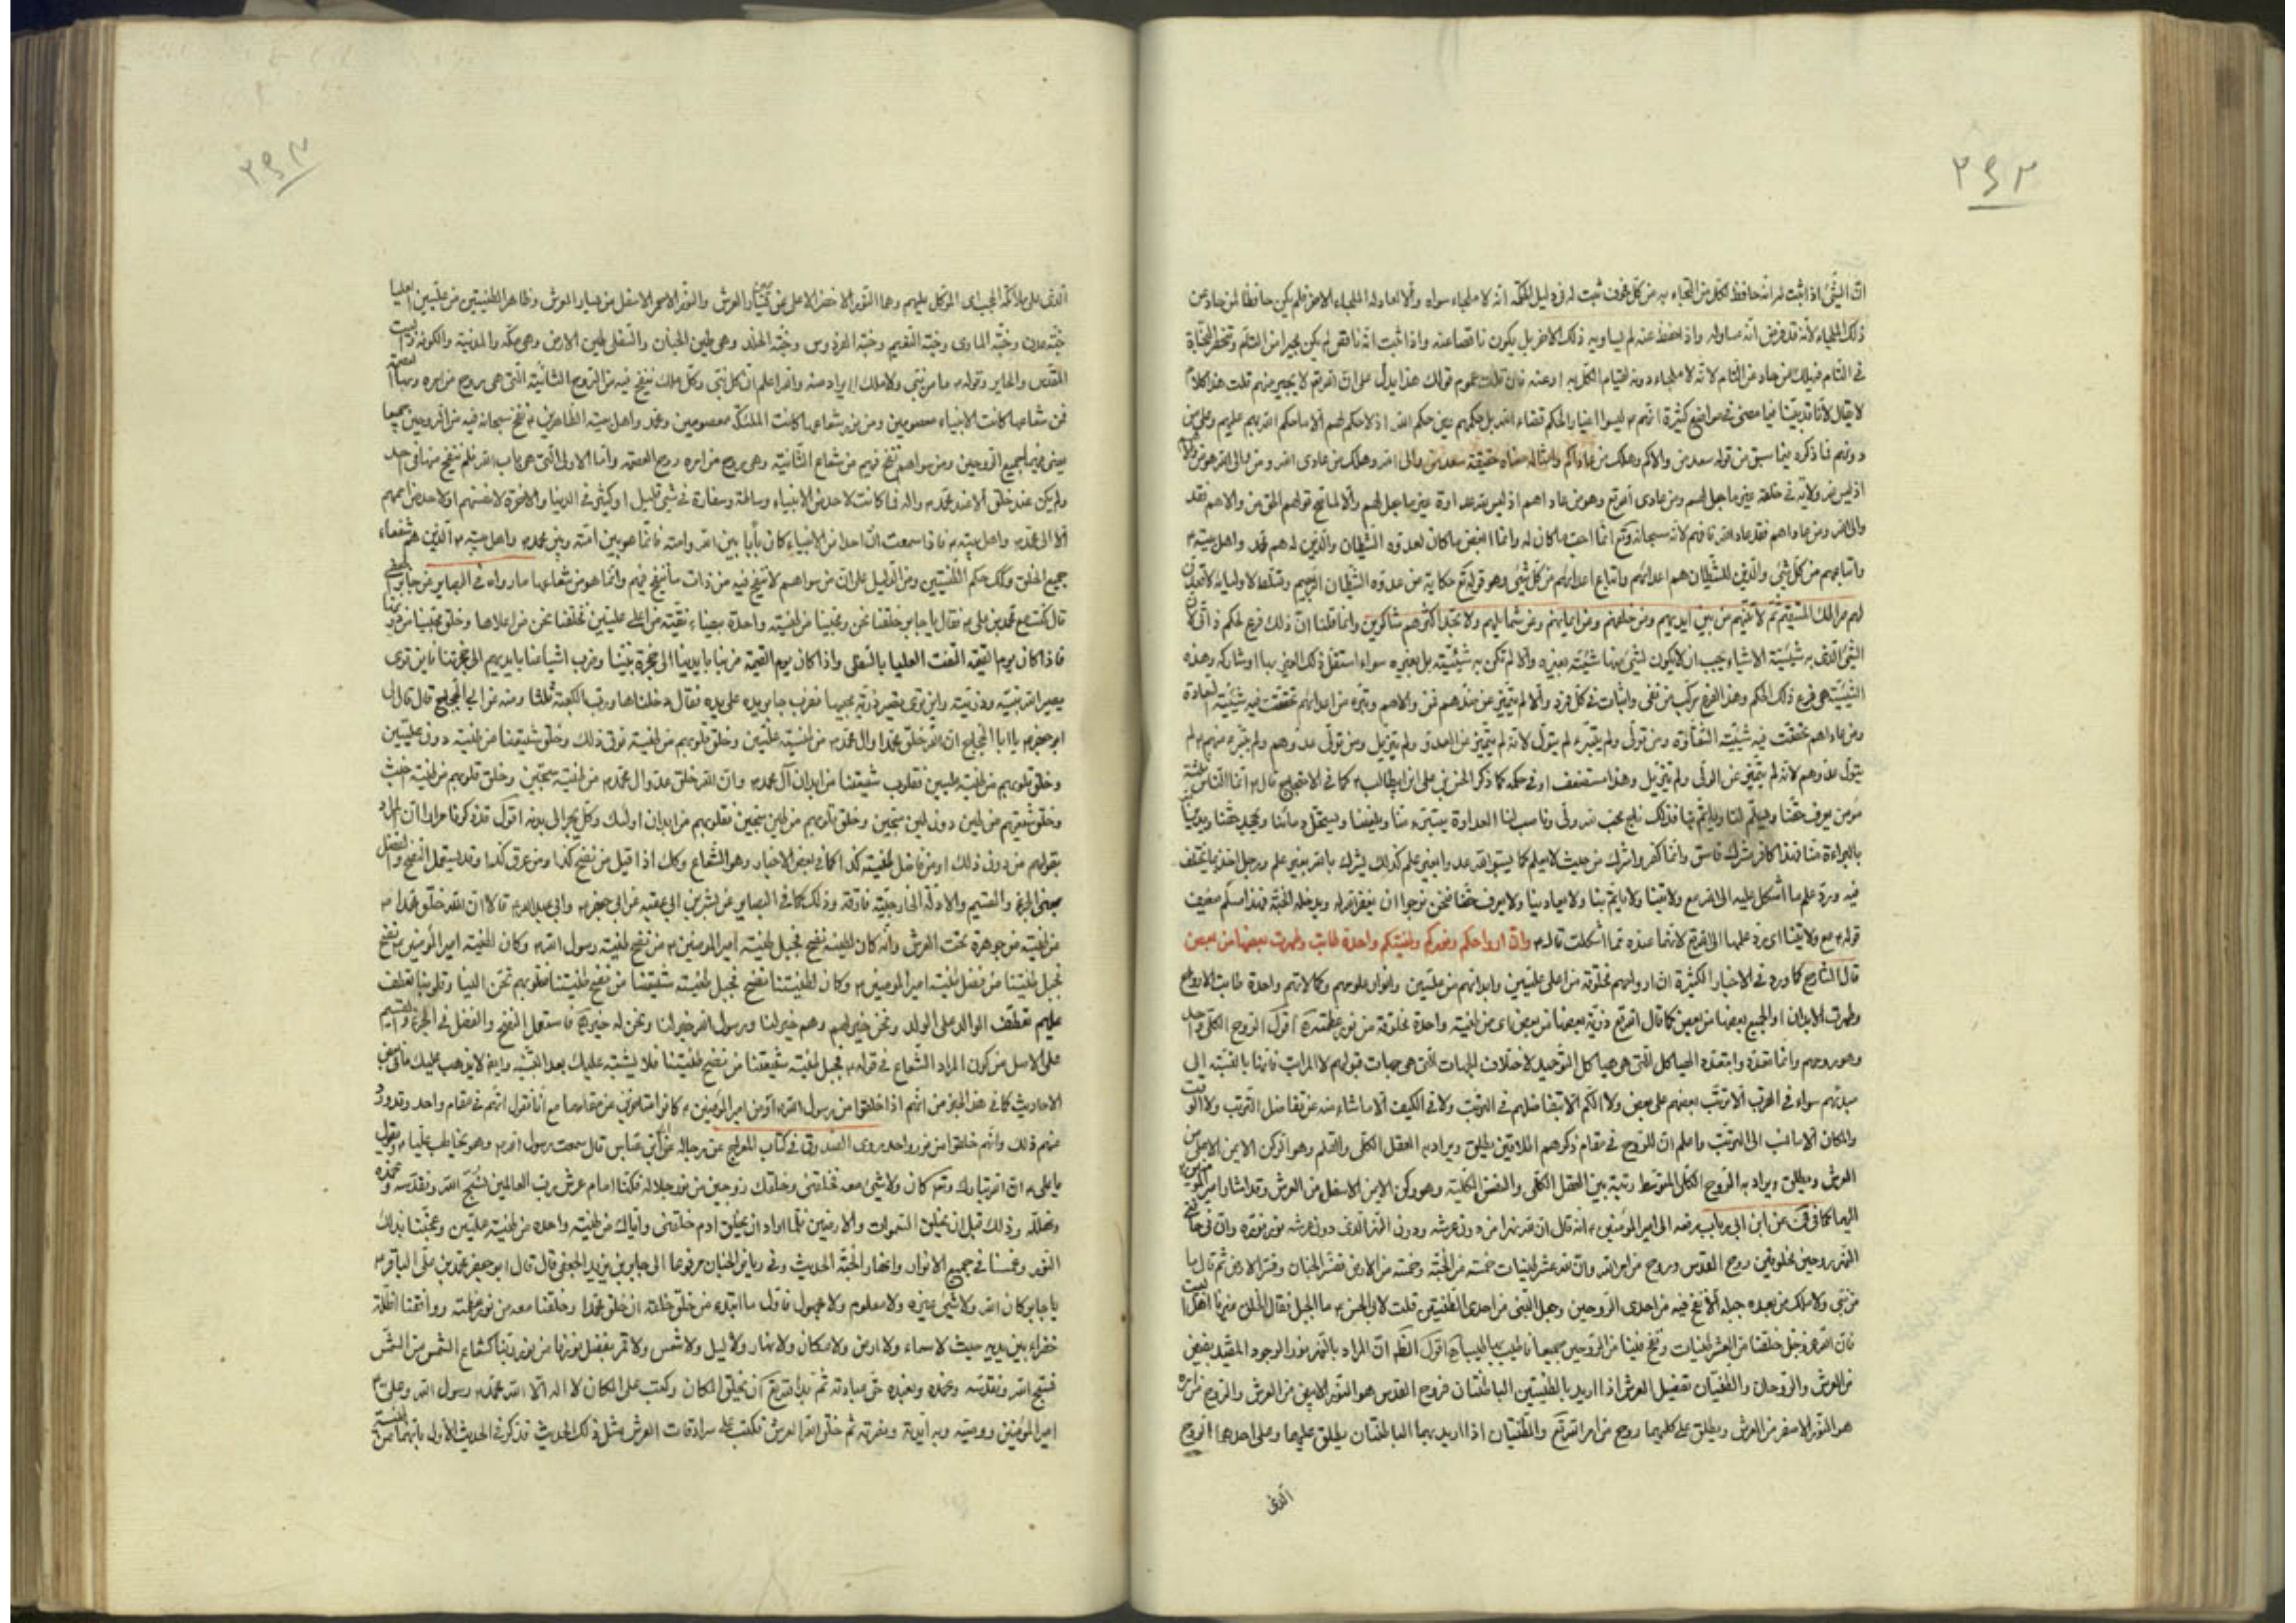 ٢٩٢
ان الشئ اذا ثبت له انه حافظ لكل من التجاء به من كل مخوف ثبت له في دليل الحكمة انه لا ملجاء سواه والا لعادله الملجاء الاخر فلم يكن حافظا لمن حاد عن
ذلك الملجاء لانه قد فرض انه مساو له واذا حفظ عنه لم يساويه ذلك الاخر بل يكون ناقصا عنه واذا ثبت انه ناقص لم يكن مجيرا من
في التام فيهلك من حاد عن التام لانه لا ملجاء دونه لقيام الكل به او عنه فان قلت عموم قولك هذا يدل على ان الله تع لا يجير منهم قلت هذا كلام
لا يقال لانا قد بيّنا فيما مضى في مواضع كثيرة انهم ليسوا اغيارا لحكم قضاء الله بل حكمهم عين حكم الله اذ لا حكم لهم الا ما حكم الله بهم عليهم وعلى من
دونهم فما ذكره فيما سبق من قوله سعد من والاكم وهلك من عاداكم وامثاله معناه حقيقة سعد من والى الله وهلك من عادى الله ومن والى الله هو من والاهم
اذ ليس لله ولاية في خلقه غير ما جعل لهم ومن عادى الله تع وهو من عاداهم اذ ليس لله عداوة غير ما جعل لهم والا لما تم قولهم الحق من والاهم فقد
والى الله ومن عاداهم فقد عاد الله فافهم لانه سبحانه وتع انما احب ما كان له وانما ابغض ما كان لعدوه الشيطان والذين له هم محمد واهل بيته
واتباعهم من كل شئ والذين للشيطان هم اعداؤهم واتباع اعدائهم من كل شئ وهو قوله تع حكاية عن عدوه الشيطان الرجيم وتسلطه لاوليائه لاقعدن
لهم صراطك المستقيم ثم لاتينهم من بين ايديهم ومن خلفهم وعن ايمانهم وعن شمائلهم ولا تجد اكثرهم شاكرين وانما قلنا ان ذلك فرع لحكم ذاتى لان
الشئ الذى به شيئية الاشياء يجب ان لا يكون لشئ منها شيئية بغيره والا لم تكن به شيئيته بل بغيره سواء استقل ذلك الغير بها او شاركه وهذه
الشيئية هي فرع ذلك الحكم وهذا الفرع مركب من نفى واثبات في كل فرد والا لم يتميز عن ضده فمن والاهم وتبرء من اعدائهم تحققت فيه شيئية السعادة
ومن عاداهم تحققت فيه شيئية الشقاوة ومن تولى ولم يتبرء لم يتول لانه لم يتميز من العدو ولم يتزيل ومن تولى عدوهم ولم يتبرء منهم لم
يتول عدوهم لانه لم يتميز عن الولى ولم يتزيل وهذا مستضعف او في حكمه كما ذكر الحسن بن علي بن ابيطالب كما في الاحتجاج قال انما الناس ثلثة
مؤمن يعرف حقنا ويسلم لنا وياتم بنا فذلك ناج محب لله ولى وناصب لنا العداوة يتبرء منا ويلعننا ويستحل دمائنا ويجحد حقنا ويدين
بالبراءة منا فهذا كافر مشرك فاسق وانما كفر واشرك من حيث لا يعلم كما يسبوا الله عدوا بغير علم كذلك يشرك بالله بغير علم ورجل اخذ بما لا يختلف
فيه ورد علم ما اشكل عليه الى الله مع ولايتنا ولا ياتم بنا ولا يعادينا ولا يعرف حقنا فنحن نرجوا ان يغفر الله له ويدخله الجنة فهذا مسلم ضعيف
قوله مع ولايتنا اى يرد علمها الى الله تع لانها عنده مما اشكلت قال وان ارواحكم ونوركم وطينتكم واحدة طابت وطهرت بعضها من بعض
قال الشارح كما ورد في الاخبار الكثيرة ان ارواحهم مخلوقة من اعلى عليين وابدانهم من عليين وانوار علومهم وكمالاتهم واحدة طابت الارواح
وطهرت الابدان او الجميع بعضها من بعض كما قال الله تع ذرية بعضها من بعض اى من طينة واحدة مخلوقة من نور عظمته اقول الروح الكلى واحد
وهو روحهم وانما تعدد وابتعدد الهياكل التى هي هياكل التوحيد لاختلاف الجهات التى هي جهات قبولهم لا المراتب فانها بالنسبة الى
مبدئهم سواء في القرب الا ترتب بعضهم على بعض ولا الكم الا تفاضلهم في الرتبة ولا في الكيف الا ما شاء منه عن تفاضل الترتب ولا الوقت
والمكان الا ما نسب الى الترتب واعلم ان للروح في مقام ذكرهم اطلاقين يطلق ويراد به العقل الكلى والقلم وهو الركن الايمن الاعلى من
العرش ويطلق ويراد به الروح الكلى المتوسط رتبة بين العقل الكلى والنفس الكلية وهو ركن الايمن الاسفل من العرش وقد اشار امير المؤمنين
اليها كما في عن ابن ابى رباب رفعه الى امير المؤمنين انه قال ان لله نهرا من دون عرشه ودون النهر الذى دون عرشه نور نوره وان في حافتى
النهر روحين مخلوقين روح القدس وروح من امر الله وان لله عشر طينات خمسة من الجنة وخمسة من الارض ففسر الجنان وفسر الارض ثم قال ما
من نبى ولا ملك من بعده جبله الا نفخ فيه من احدى الروحين وجعل النبى من احدى الطينتين قلت لابى الحسن ما الجبل فقال الخلق غيرنا اهل البيت
فان الله عز وجل خلقنا من العشر طينات ونفخ فينا من الروحين جميعا فاطيب بها طيبا اقول الظ ان المراد بالنهر نور الوجود المقيد يفيض
من العرش والروحان والطينتان تفصيل العرش اذا اريد بالطينتين الباطنتان فروح القدس هو النور الابيض من العرش والروح من امره
هو النور الاصفر من العرش ويطلق على كليهما روح من امر الله تع والطينتان اذا اريد بهما الباطنتان يطلق عليهما وعلى احدهما الروح
الذى
٢٩٣
الذى على ملائكة الحجب اى الموكل عليهم وهما النور الاخضر الاعلى عن يسار العرش والنور الاحمر الاسفل من يسار العرش وظاهر الطينتين من عليين العليا
جنة عدن وجنة الماوى وجنة النعيم وجنة الفردوس وجنة الخلد وهي طين الجنان والسفلى طين الارض وهي مكة والمدينة والكوفة وبيت
المقدس والحاير وقوله ما من نبى ولا ملك يراد منه والله اعلم ان كل نبى وكل ملك ينفخ فيه من الروح الثانية التى هي روح من امره وبها العصمة
فمن شعاعها كانت الانبياء معصومين ومن نور شعاعها كانت الملئكة معصومين ومحمد واهل بيته الطاهرين نفخ سبحانه فيه من الروحين جميعا
يعنى فيهم لجميع الروحين ومن سواهم نفخ فيهم من شعاع الثانية وهي روح من امره روح العصمة واما الاولى التى هي باب الله فلم تنفخ منها في احد
ولم يكن عند خلق الا عند محمد واله فما كانت لاحد من الانبياء وسالمة وسفارة في شئ قليل او كثير في الدنيا والاخرة لانفسهم او لاحد من اممهم
الا الى محمد واهل بيته فاذا سمعت ان احدا من الانبياء كان بابا بين الله وامته فانما هو بين امته وبين محمد واهل بيته الذين هم شفعاء
جميع الخلق وكك حكم الطينتين ومن الدليل على ان من سواهم لا ينفخ فيه من ذات ما نفخ فيهم وانما هو من شعاعها ما رواه في البصاير عن جابر الجعفى
قال كنت مع محمد بن على فقال يا جابر خلقنا نحن ومحبينا من طينة واحدة بيضاء نقية من اعلى عليين فخلقنا نحن من اعلاها وخلق محبينا من دونها
فاذا كان يوم القيمة التفت العليا بالسفلى واذا كان يوم القيمة ضربنا بايدينا الى حجزة نبينا وضرب اشياعنا بايديهم الى حجزتنا فاين ترى
يصير الله نبيه وذريته واين ترى يصير ذرية محبيها فضرب جابر يده على يده فقال دخلناها ورب الكعبة ثلثا ومنه عن ابى الحجاج قال قال لى
ابو جعفر يا ابا الحجاج ان الله خلق محمدا وال محمد من طينة عليين وخلق قلوبهم من طينة فوق ذلك وخلق شيعتنا من طينة دون عليين
وخلق قلوبهم من طينة عليين فقلوب شيعتنا من ابدان آل محمد وان الله خلق عدو ال محمد من طينة سجين وخلق قلوبهم من طينة اخبث
وخلق شيعتهم من طين دون طين سجين وخلق قلوبهم من طين سجين فقلوبهم من ابدان اولئك وكل يجر الى بدنه اقول قد ذكرنا مرارا ان المراد
بقولهم من دون ذلك او من فاضل طينته كذا كما في بعض الاخبار وهو الشعاع وكك اذا قيل من نضح كذا ومن عرق كذا وقد يستعمل النضح والفضل
بمعنى الجزء والقسيم والادلة الخارجية فارقة وذلك كما في البصاير عن بشر بن ابى عقبه عن ابى جعفر وابى عبد الله قالا ان الله خلق محمدا
من طينة من جوهرة تحت العرش وانه كان لطينته نضح فجبل طينة امير المؤمنين من نضح طينة رسول الله وكان لطينة امير المؤمنين نضح
فجبل طينتنا من فضل طينة امير المؤمنين وكان لطينتنا نضح فجبل طينة شيعتنا من نضح طينتنا فقلوبهم تحن الينا وقلوبنا تعطف
عليهم تعطف الوالد على الولد ونحن خير لهم وهم خير لنا ورسول الله خير لنا ونحن له خير فاستعمل النضح والفضل في الجزء والقسيم
على الاصل من كون المراد الشعاع في قوله فجبل طينة شيعتنا من نضح طينتنا فلا يشتبه عليك بعد التنبيه وايضا لا يذهب عليك ما في بعض
الاحاديث كما في هذا الخبر من انهم اذا خلقوا من رسول الله او من امير المؤمنين كانوا متاخرين عن مقامهما مع انا نقول انهم في مقام واحد وقد ورد
عنهم ذلك وانهم خلقوا من نور واحد روى الصدوق في كتاب المعراج عن رجاله عن ابن عباس قال سمعت رسول الله وهو يخاطب عليا ويقول
يا على ان الله تبارك وتع كان ولا شئ معه فخلقنى وخلقك زوجين من نور جلاله فكنا امام عرش رب العالمين نسبح الله ونقدسه ونحمده
ونهلله وذلك قبل ان يخلق السموات والارضين فلما اراد ان يخلق ادم خلقنى واياك من طينة واحدة من طينة عليين وعجننا بذلك
النور وغمسنا في جميع الانوار وانهار الجنة الحديث وفي رياض الجنان مرفوعا الى جابر بن يزيد الجعفى قال قال ابو جعفر محمد بن على الباقر
يا جابر كان الله ولا شئ غيره ولا معلوم ولا مجهول فاول ما ابتدء من خلق خلقه ان خلق محمدا وخلقنا معه من نور عظمته واوقفنا اظلة
خضراء بين يديه حيث لا سماء ولا ارض ولا مكان ولا نهار ولا ليل ولا شمس ولا قمر يفصل نورنا من نور ربنا كشعاع الشمس من الشمس
نسبح الله ونقدسه ونحمده ونعبده حق عبادته ثم بدا لله تع ان يخلق المكان وكتب على المكان لا اله الا الله محمد رسول الله وعلى
امير المؤمنين ووصيه وبه ايدته ونصرته ثم خلق الله العرش فكتب على سرادقات العرش مثل ذلك الحديث فذكر في الحديث الاول بانهما من